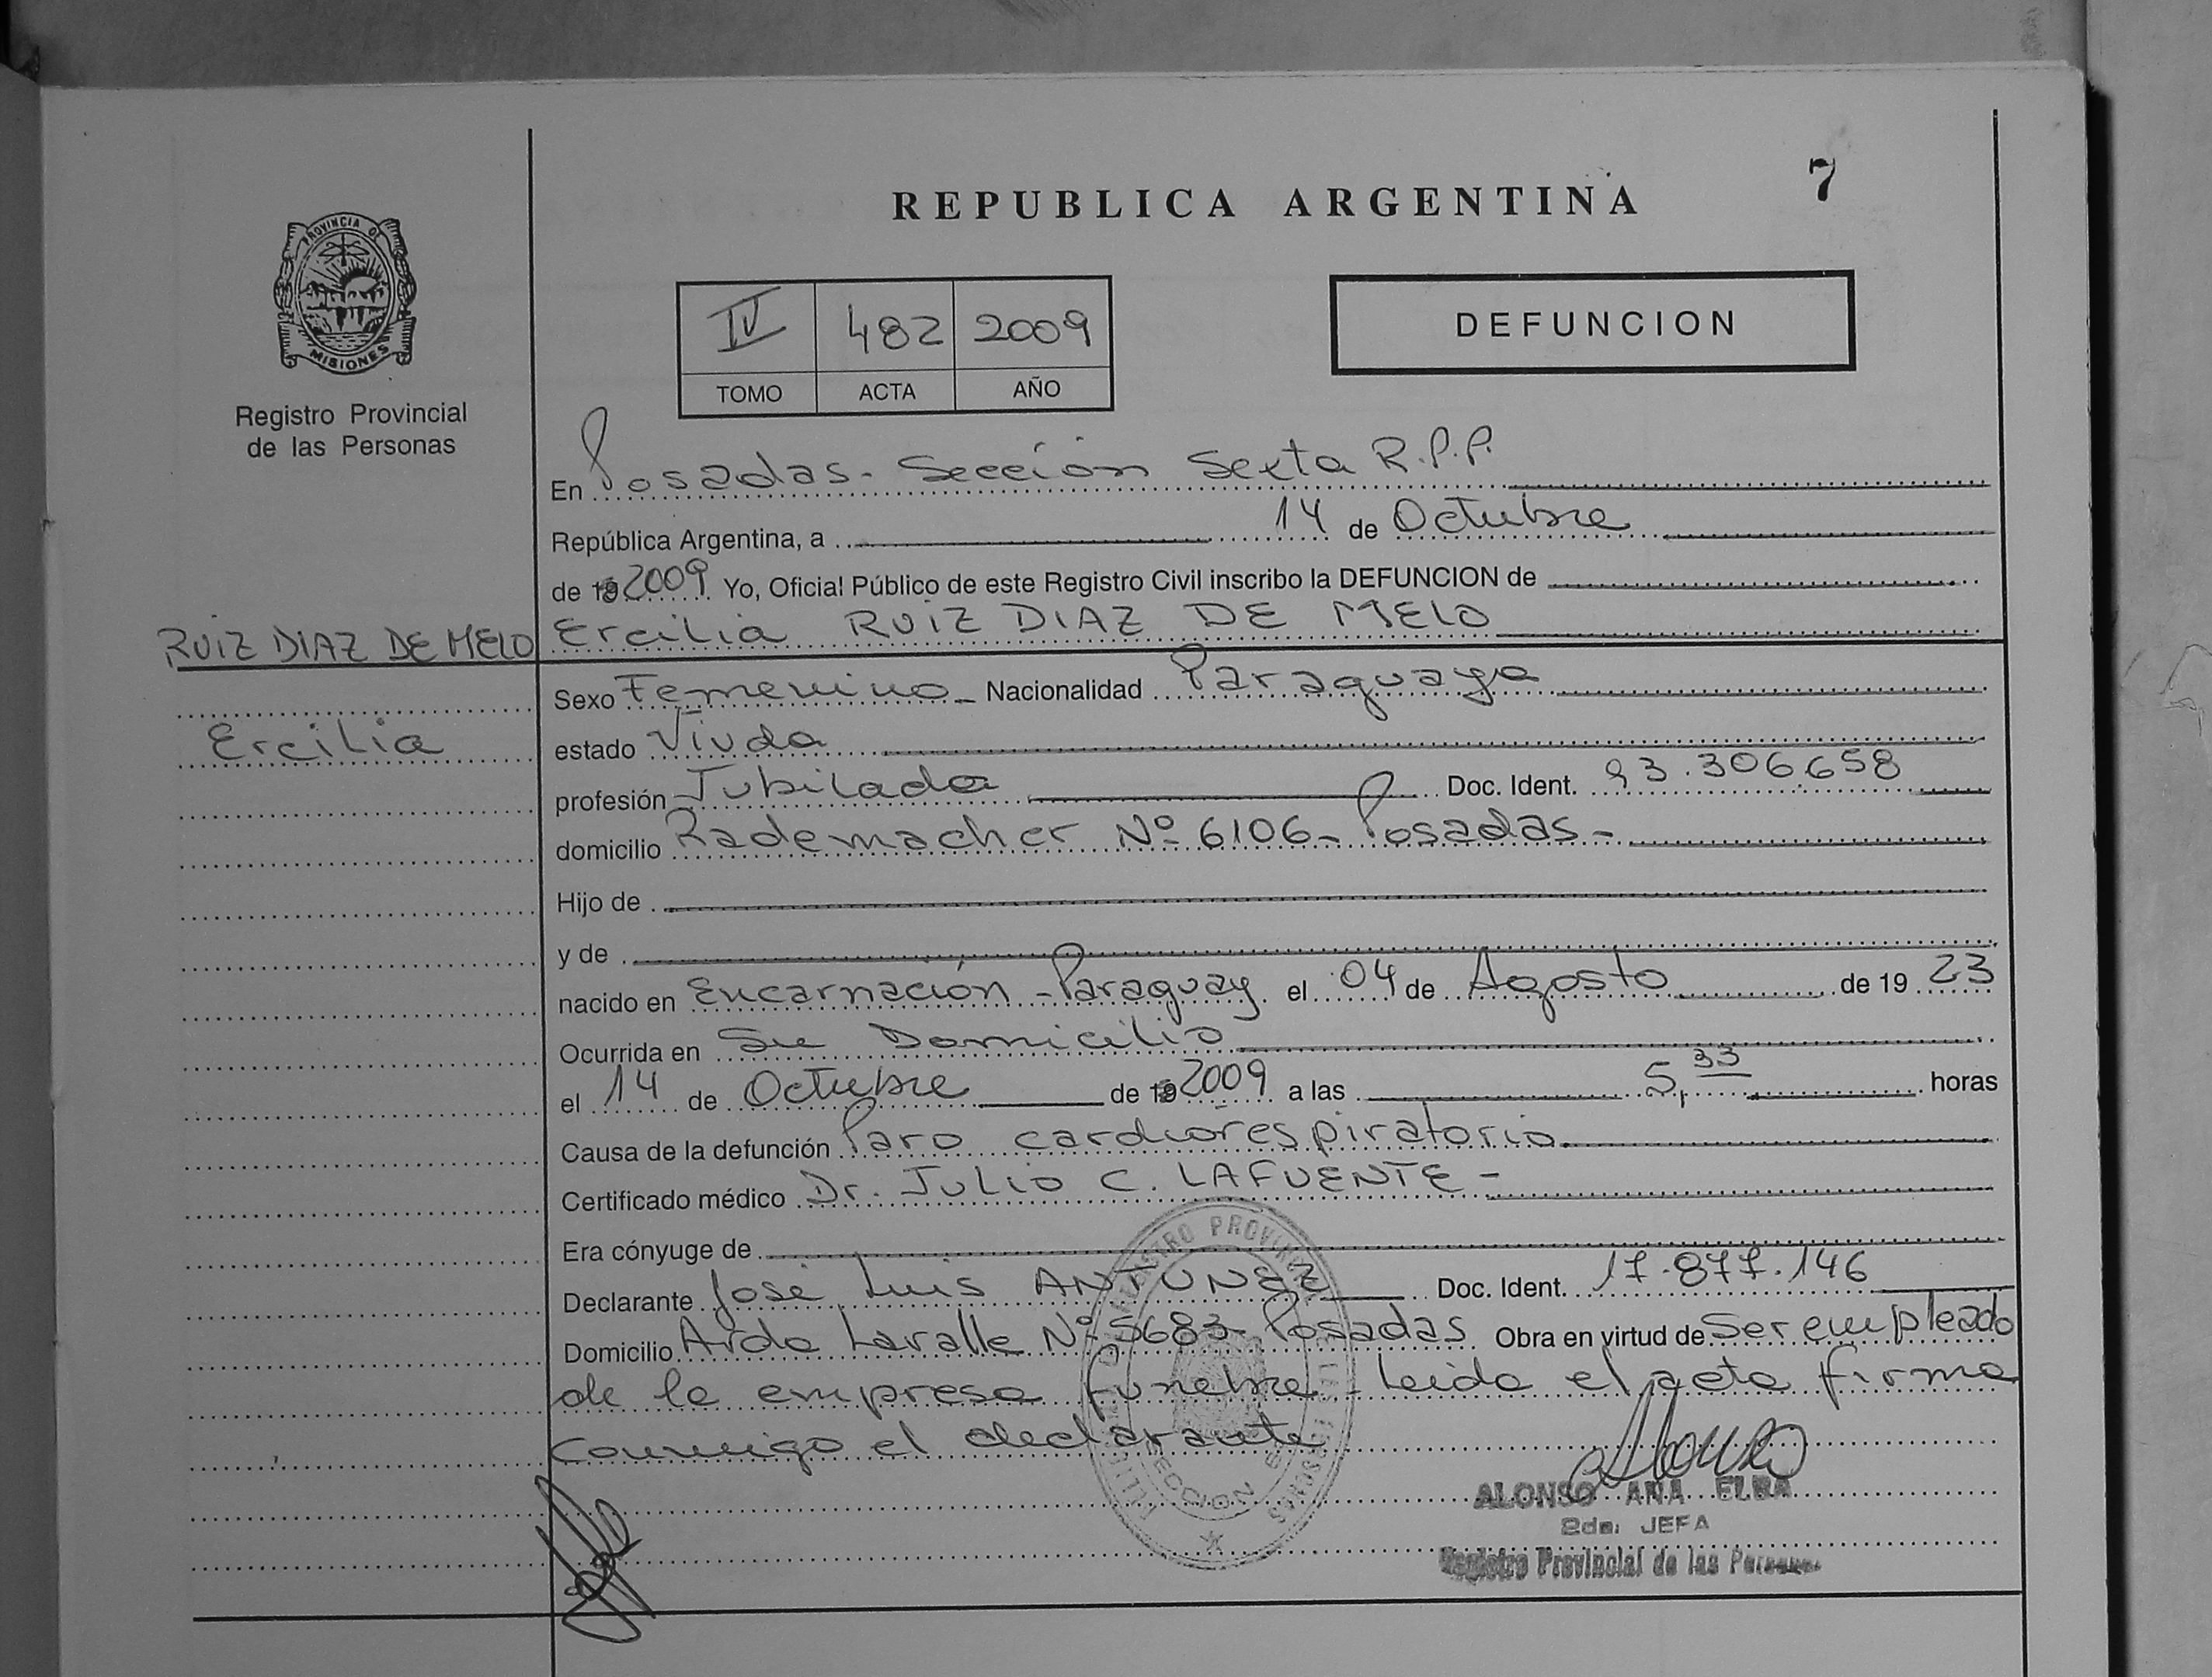 REPUBLICA ARGENTINA
7
PROVINCIA DE
MISIONES
Registro Provincial
de las Personas
IV 482 2009
TOMO ACTA AÑO
DEFUNCION
En Posadas - Sección Sexta R.P.P.
República Argentina, a 14 de Octubre
de 19 2009 Yo, Oficial Público de este Registro Civil inscribo la DEFUNCION de
Ercilia RUIZ DIAZ DE MELO
RUIZ DIAZ DE MELO
Ercilia
Sexo Femenino - Nacionalidad Paraguaya
estado Viuda
profesión Jubilada Doc. Ident. 93.306.658
domicilio Rademacher Nº 6106 - Posadas -
Hijo de
y de
nacido en Encarnación - Paraguay el 04 de Agosto de 19 23
Ocurrida en Su Domicilio
el 14 de Octubre de 19 2009 a las 5,33 horas
Causa de la defunción Paro cardiorespiratorio
Certificado médico Dr. Julio C. LAFUENTE -
Era cónyuge de
Declarante José Luis ANTUNEZ Doc. Ident. 17.877.146
Domicilio Avda Lavalle Nº 5683 - Posadas Obra en virtud de Ser empleado
de la empresa fúnebre - Leída el acta firma
conmigo el declarante
ALONSO ANA ELBA
2da. JEFA
Registro Provincial de las Personas